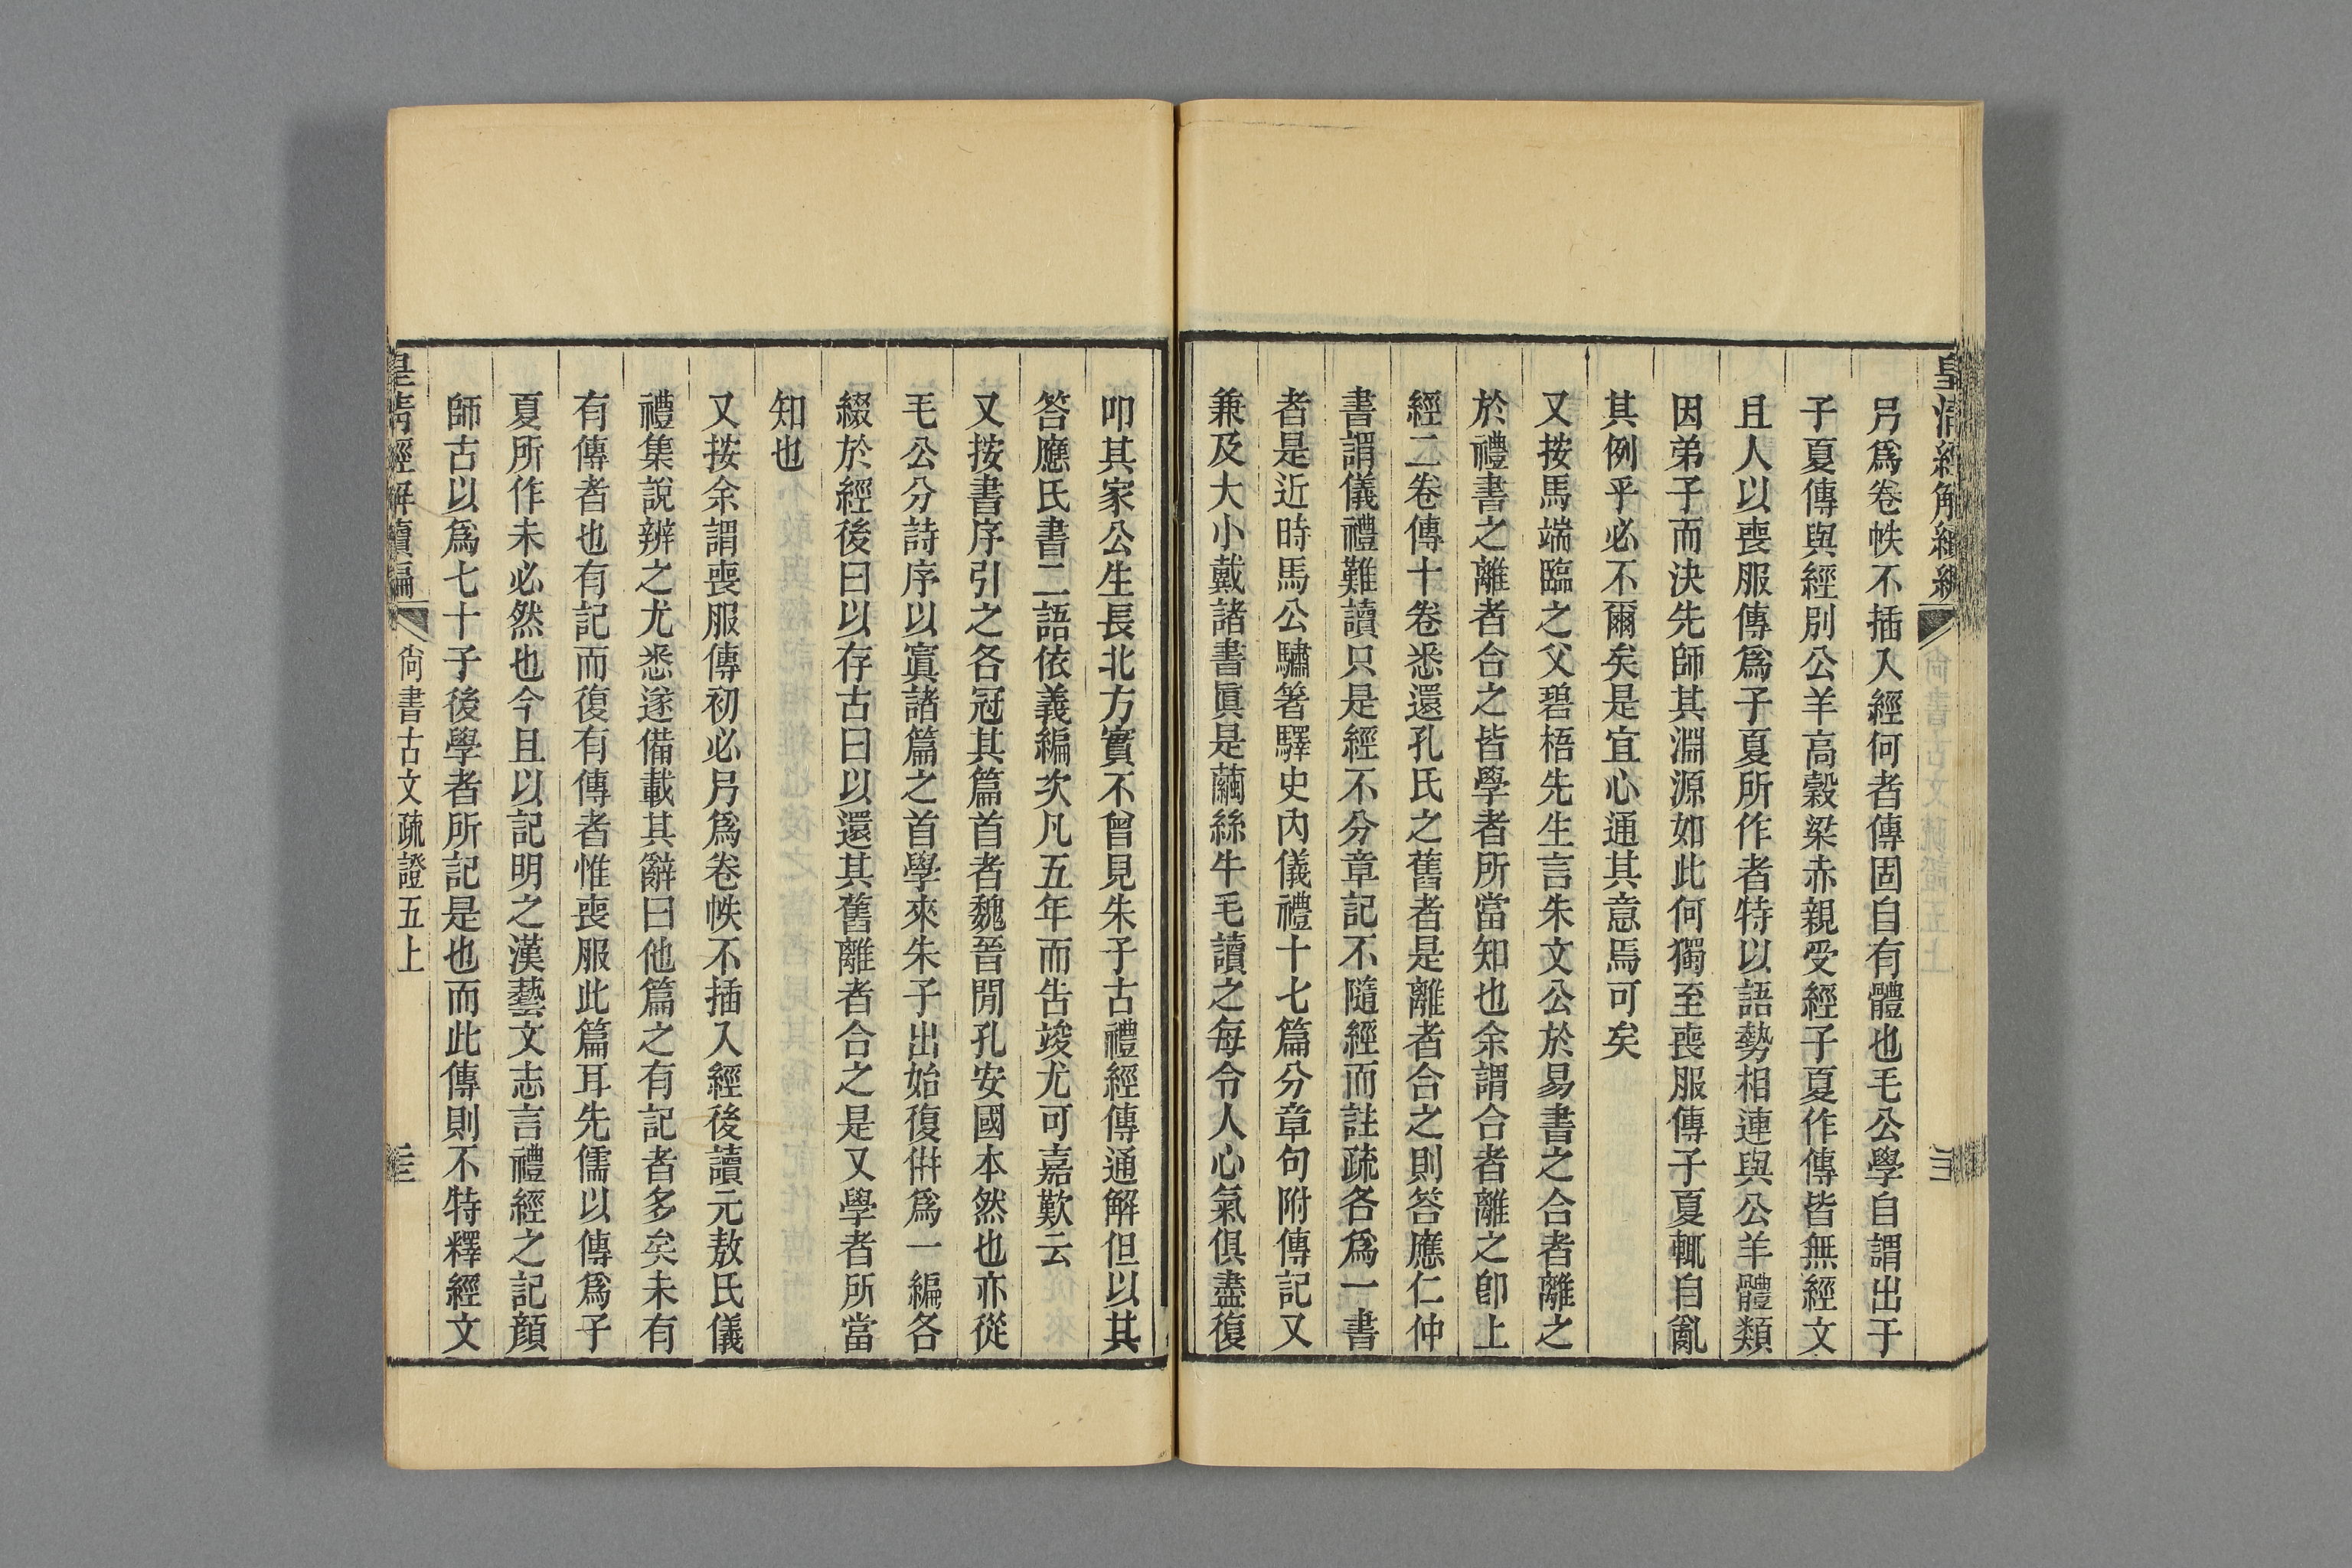 皇清經解續編
弓爲卷帙不插入經何者傳固自有體也毛公學自謂出于
子夏傳與經別公羊高穀梁赤親受經子夏作傳皆無經文
且人以喪服傳爲子夏所作者特以語勢相連與公羊體類
因弟子而決先師其淵源如此何獨至喪服傳子夏輒自亂
其例乎必不爾矣是宜心通其意焉可矣
又按馬端臨之父碧梧先生言朱文公於易書之合者離之
於禮書之離者合之皆學者所當知也余謂合者離之卽上
經二卷傳十卷悉還孔氏之舊者是離者合之則答應仁仲
書謂儀禮難讀只是經不分章記不隨經而註疏各爲一書
者是近時馬公驌箸驛史內儀禮十七篇分章句附傳記又
兼及大小戴諸書眞是繭絲牛毛讀之每令人心氣俱盡復
叩其家公生長北方實不曾見朱子古禮經傳通解但以其
答應氏書二語依義編次凡五年而告竣尤可嘉歎云
又按書序引之各冠其篇首者魏晉閒孔安國本然也亦從
毛公分詩序以寘諸篇之首學來朱子出始復倂爲一編各
綴於經後曰以存古曰以還其舊離者合之是又學者所當
知也
又按余謂喪服傳初必弓爲卷帙不插入經後讀元敖氏儀
禮集說辨之尤悉遂備載其辭曰他篇之有記者多矣未有
有傳者也有記而復有傳者惟喪服此篇耳先儒以傳爲子
夏所作未必然也今且以記明之漢藝文志言禮經之記顏
師古以爲七十子後學者所記是也而此傳則不特釋經文
皇清經解續編
尙書古文疏證五上